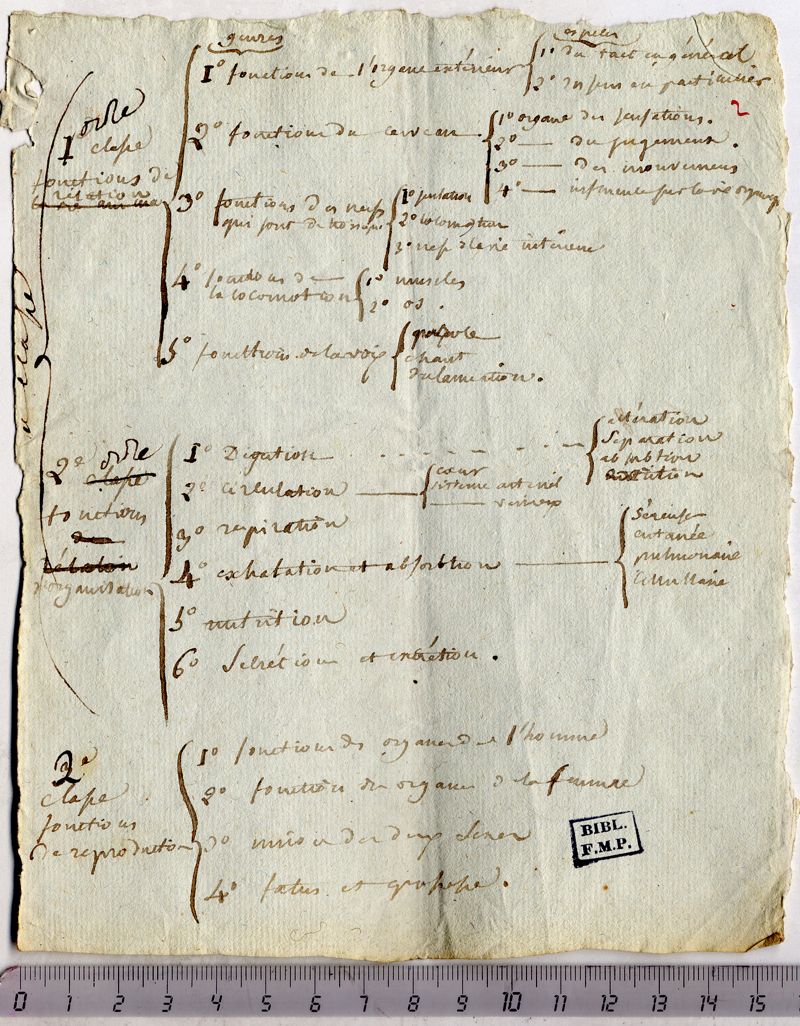 genres
espèces
1º fonctions de l'organe extérieur
1º du tact en général
2º des sens en particulier
2
1er ordre
classe
fonctions de
relation
la vie animale
2º fonctions du cerveau
1º organe des sensations.
2º — du jugement.
3º — des mouvemens
4º — influence sur la vie organique
3º fonctions des nerfs
qui sont
1º sensation
2º locomotion
3º nerfs de la vie intérieure
4º fonctions de
la locomotion
1º muscles
2º os.
5º fonctions de la voix
parole
chant
déclamation.
1e classe
2e ordre
classe
fonctions
de
relation
d'organisation
1º Digestion
altération
séparation
absorbtion
2º circulation
cœur
sisteme arteriel
— veineux
3º respiration
4º exhalation et absorbtion
Séreuse
cutanée
pulmonaire
cellullaire
5º nutrition
6º Sécrétions et excrétion.
2e
classe
fonctions
de reproduction
1º fonctions des organes de l'homme
2º fonction des organes de la femme
3º union des deux sexes
4º fœtus et grossesse.
BIBL.
F.M.P.
0 1 2 3 4 5 6 7 8 9 10 11 12 13 14 15